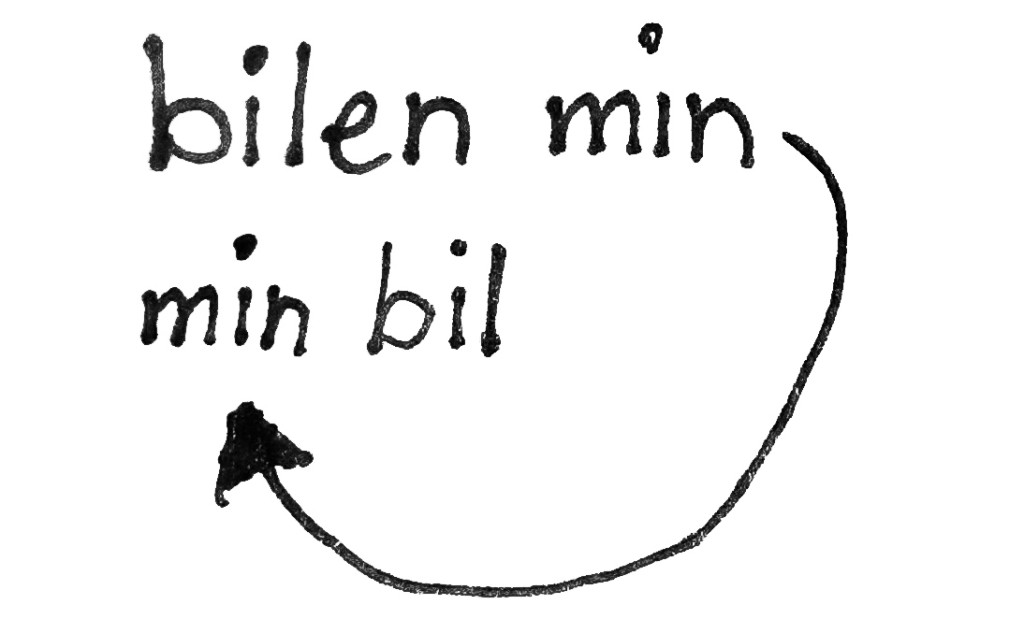 bilen min
min bil